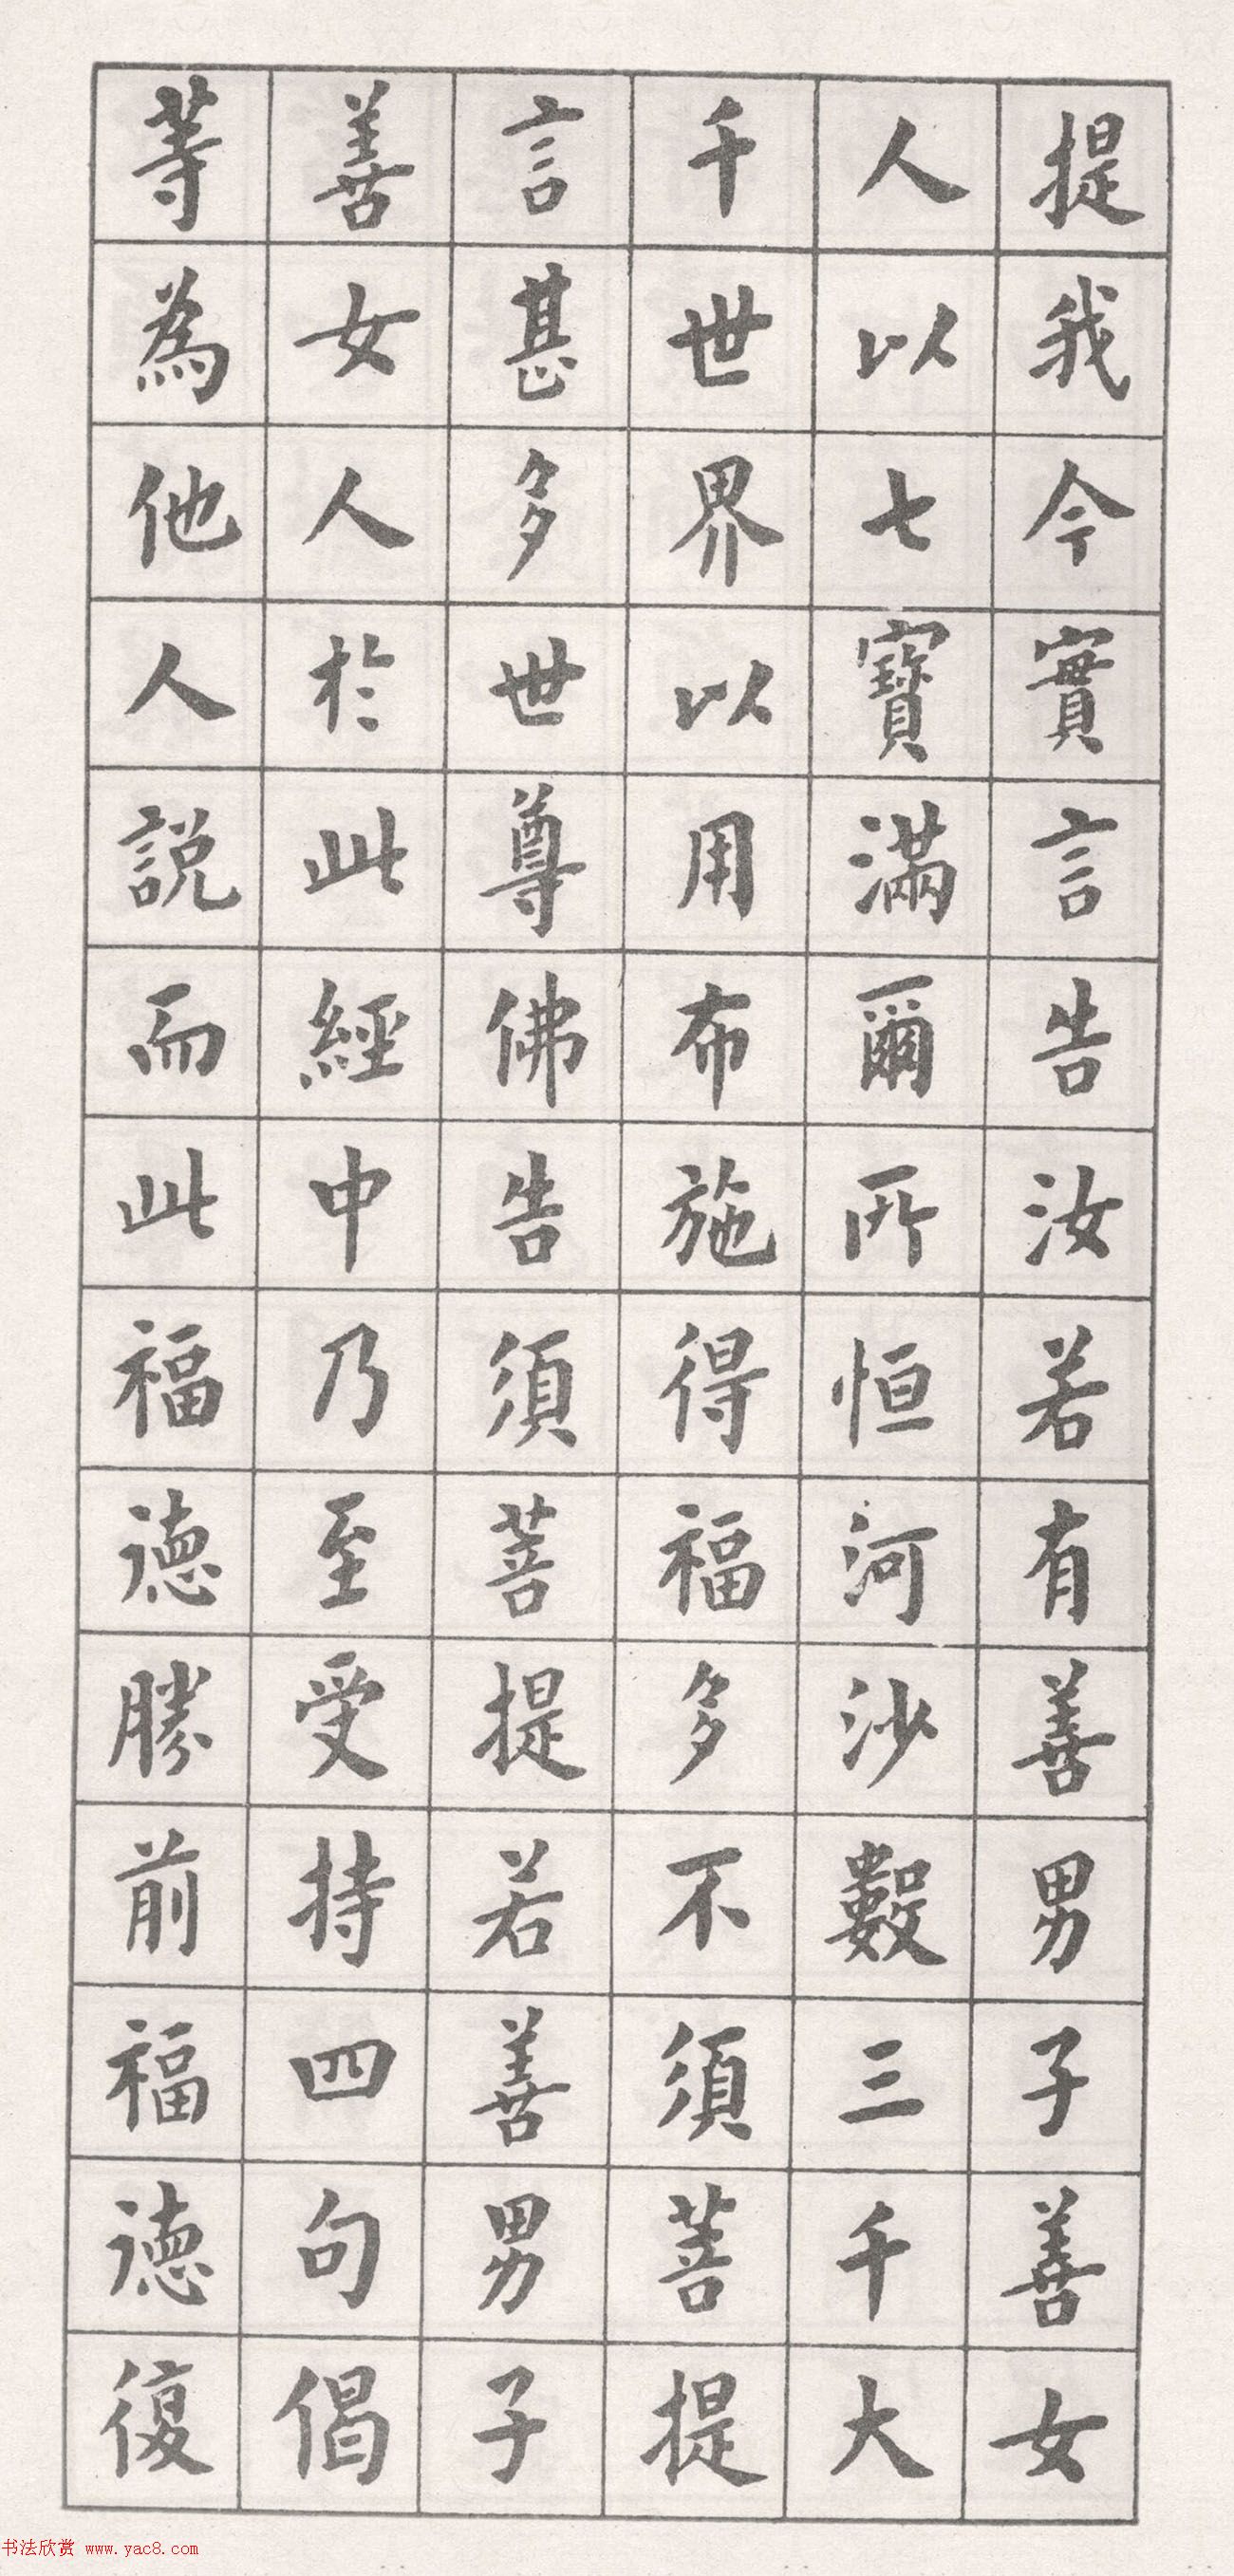 提我今實言告汝若有善男子善女
人以七寶滿爾所恒河沙數三千大
千世界以用布施得福多不須菩提
言甚多世尊佛告須菩提若善男子
善女人於此經中乃至受持四句偈
等為他人說而此福德勝前福德復
书法欣赏 www.yac8.com